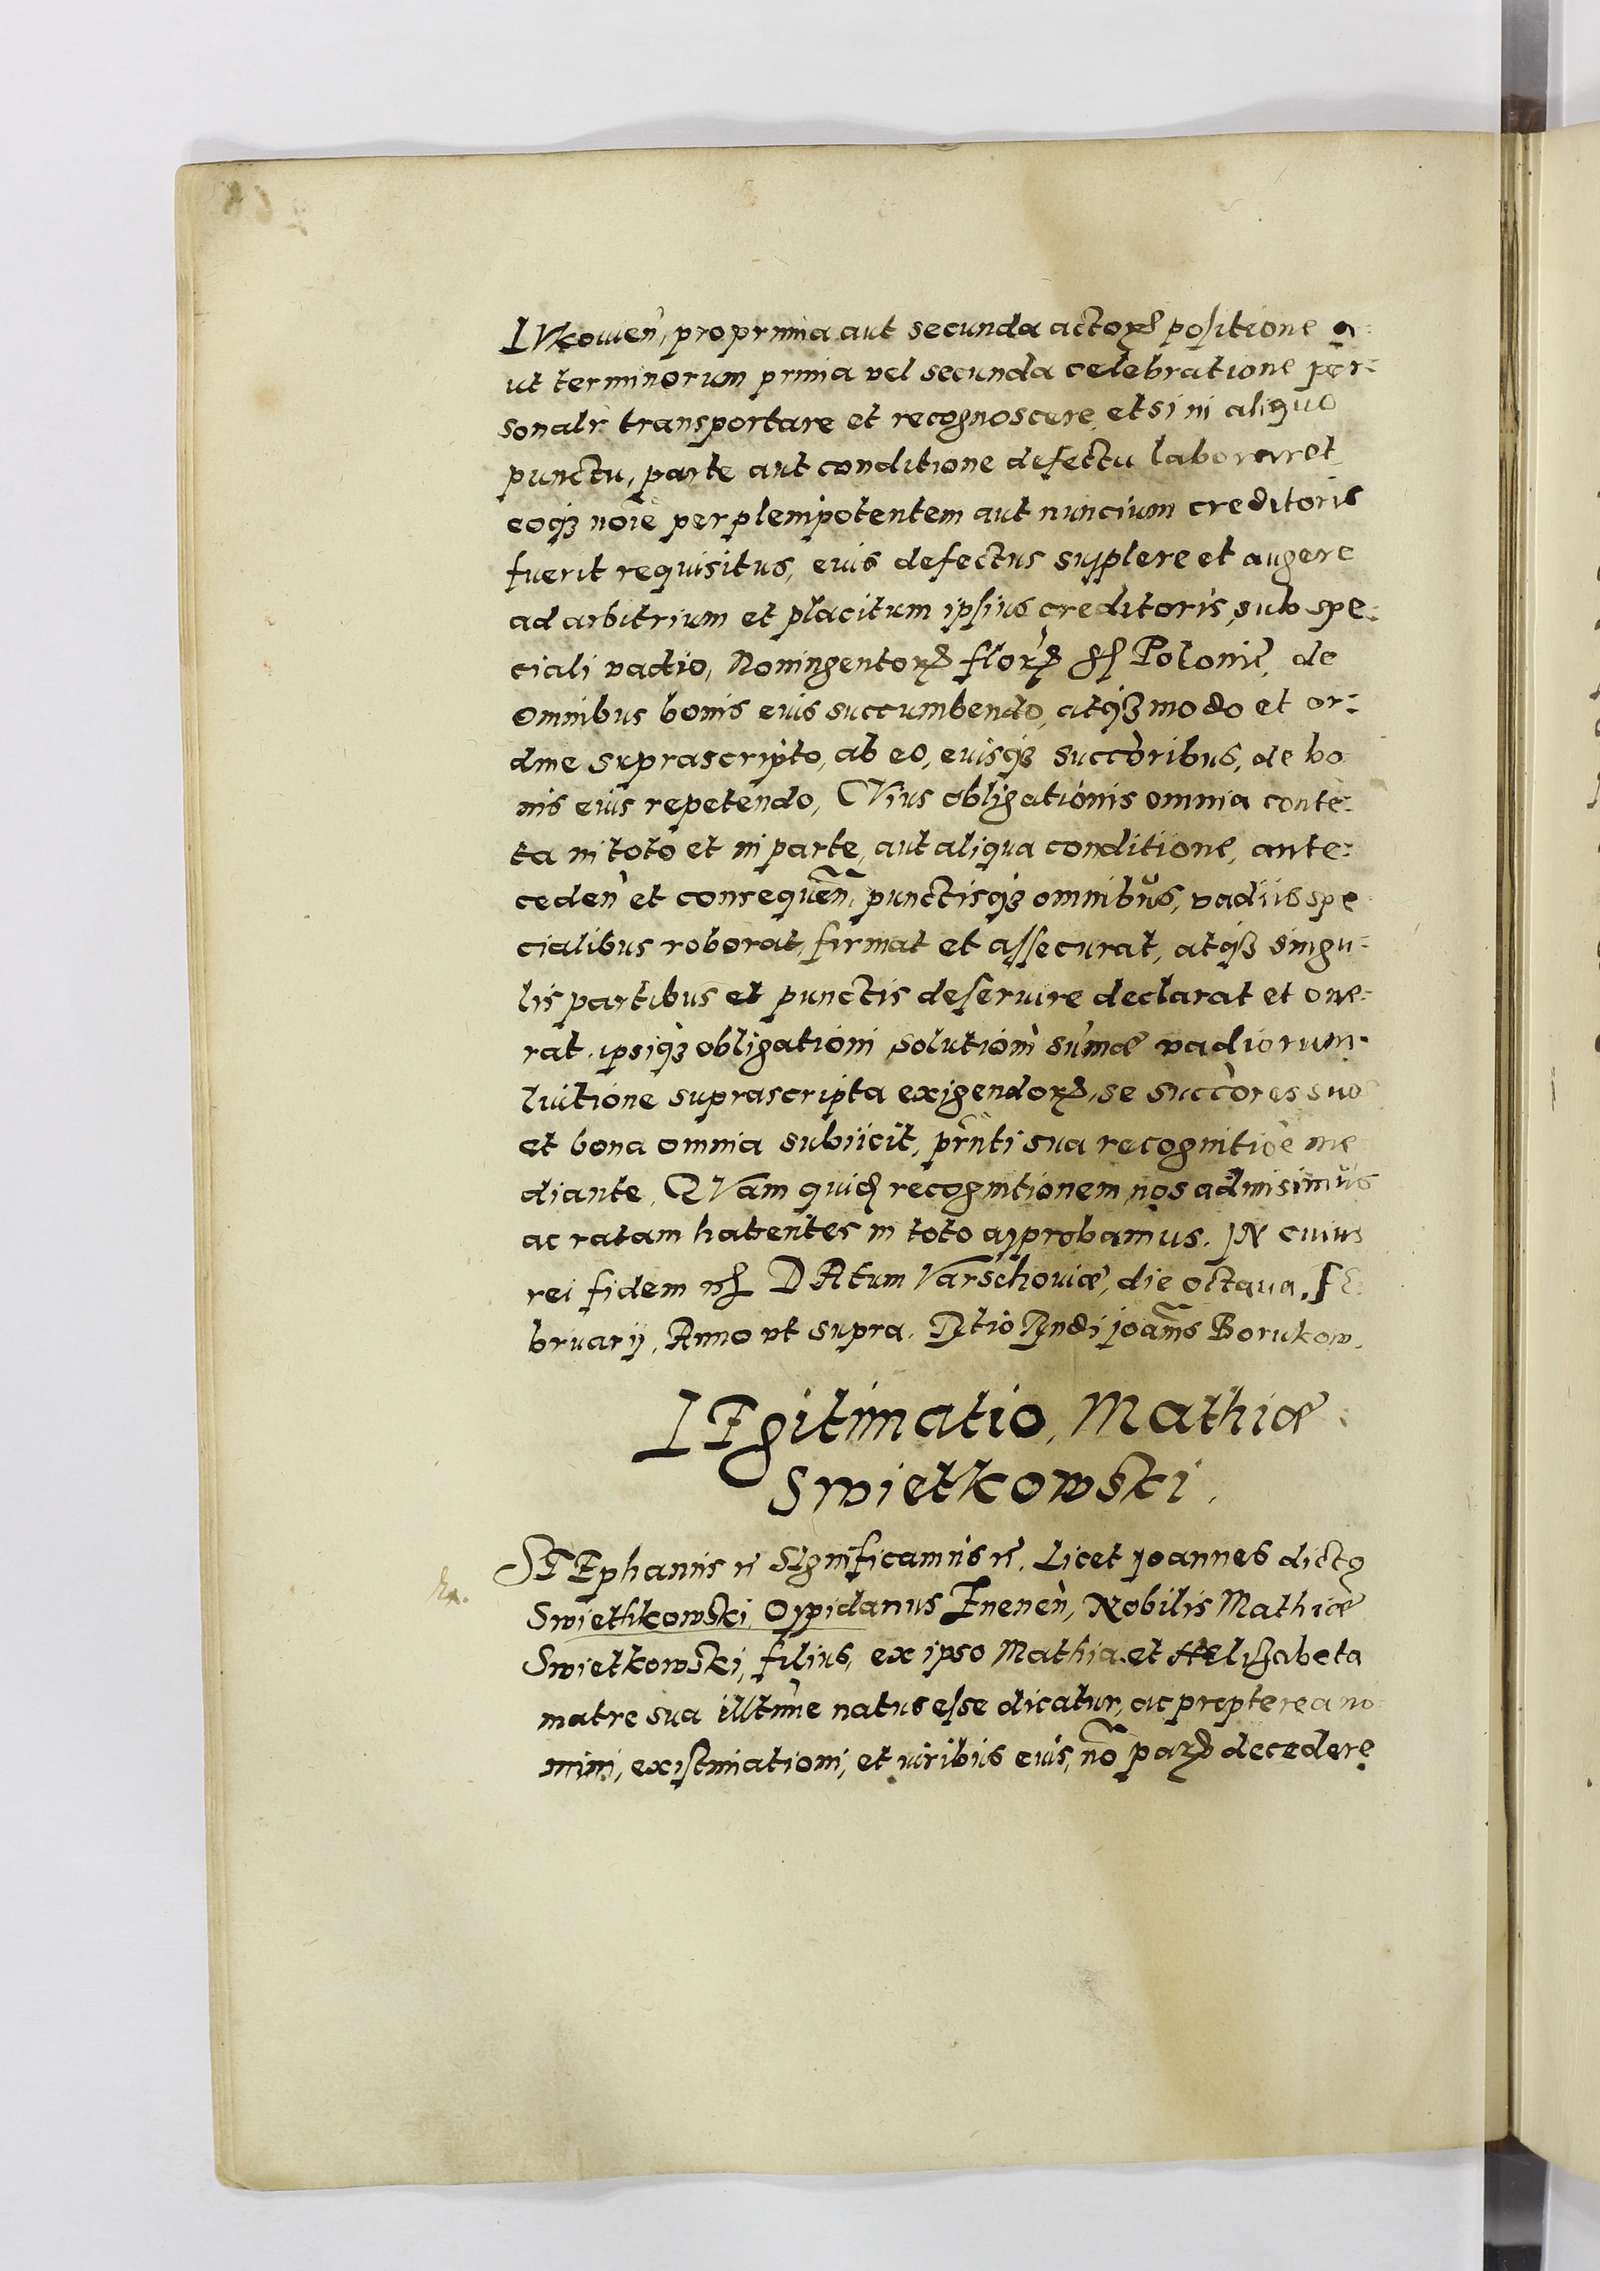 LVkouien, pro prima aut secunda actorꝝ positione a:
ut terminorum prima vel secunda celebratione per:
sonalr transportare et recognoscere, et si in aliquo
punctu, parte aut conditione defectu laboraret
eoqꝫ noie per plenipotentem aut nuncium creditoris
fuerit requisitus, euis defectus supplere et augere
ad arbitrium et placitum ipsius creditoris, sub spe:
ciali vadio, Noningentorꝝ florꝝ Polonie, de
Omnibus bonis euis succumbendo, atqꝫ modo et or:
dine suprascripto, ab eo, euisqꝫ succoribus, de bo
nis euis repetendo, CVius obligationis omnia conte:
ta in toto et in parte, aut aliqua conditione, ante:
ceden et consequen, punctisqꝫ omnibus, vadiis spe
cialibus roborat, firmat et assecurat, atqꝫ singu:
lis partibus et punctis deseruire declarat et one:
rat, ipsiqꝫ obligationi solutioni sumæ vadiorum
luitione suprascripta exigendorꝝ, se succores suo
et bona omnia subiicit, prnti sua recognitioe me
diante, QVam quid recognitionem nos admisimus
ac ratam habentes in toto approbamus. IN cuius
rei fidem DAtum Varschouiæ, die octaua, FE
bruarij, Anno vt supra. Joanns Borukow.
LEgitimatio, Mathiæ
Swietkowski.
STEphanus Significamus Licet Joannes dictꝯ
Swiethkowski, Oppidanus Knenen, Nobilis Mathiæ
Swietkowski, filius, ex ipso Mathia et Helizabeta
matre sua illtime natus esse dicatur, ac propterea no
mini, existimationi, et uiribus euis, no parꝝ decedere